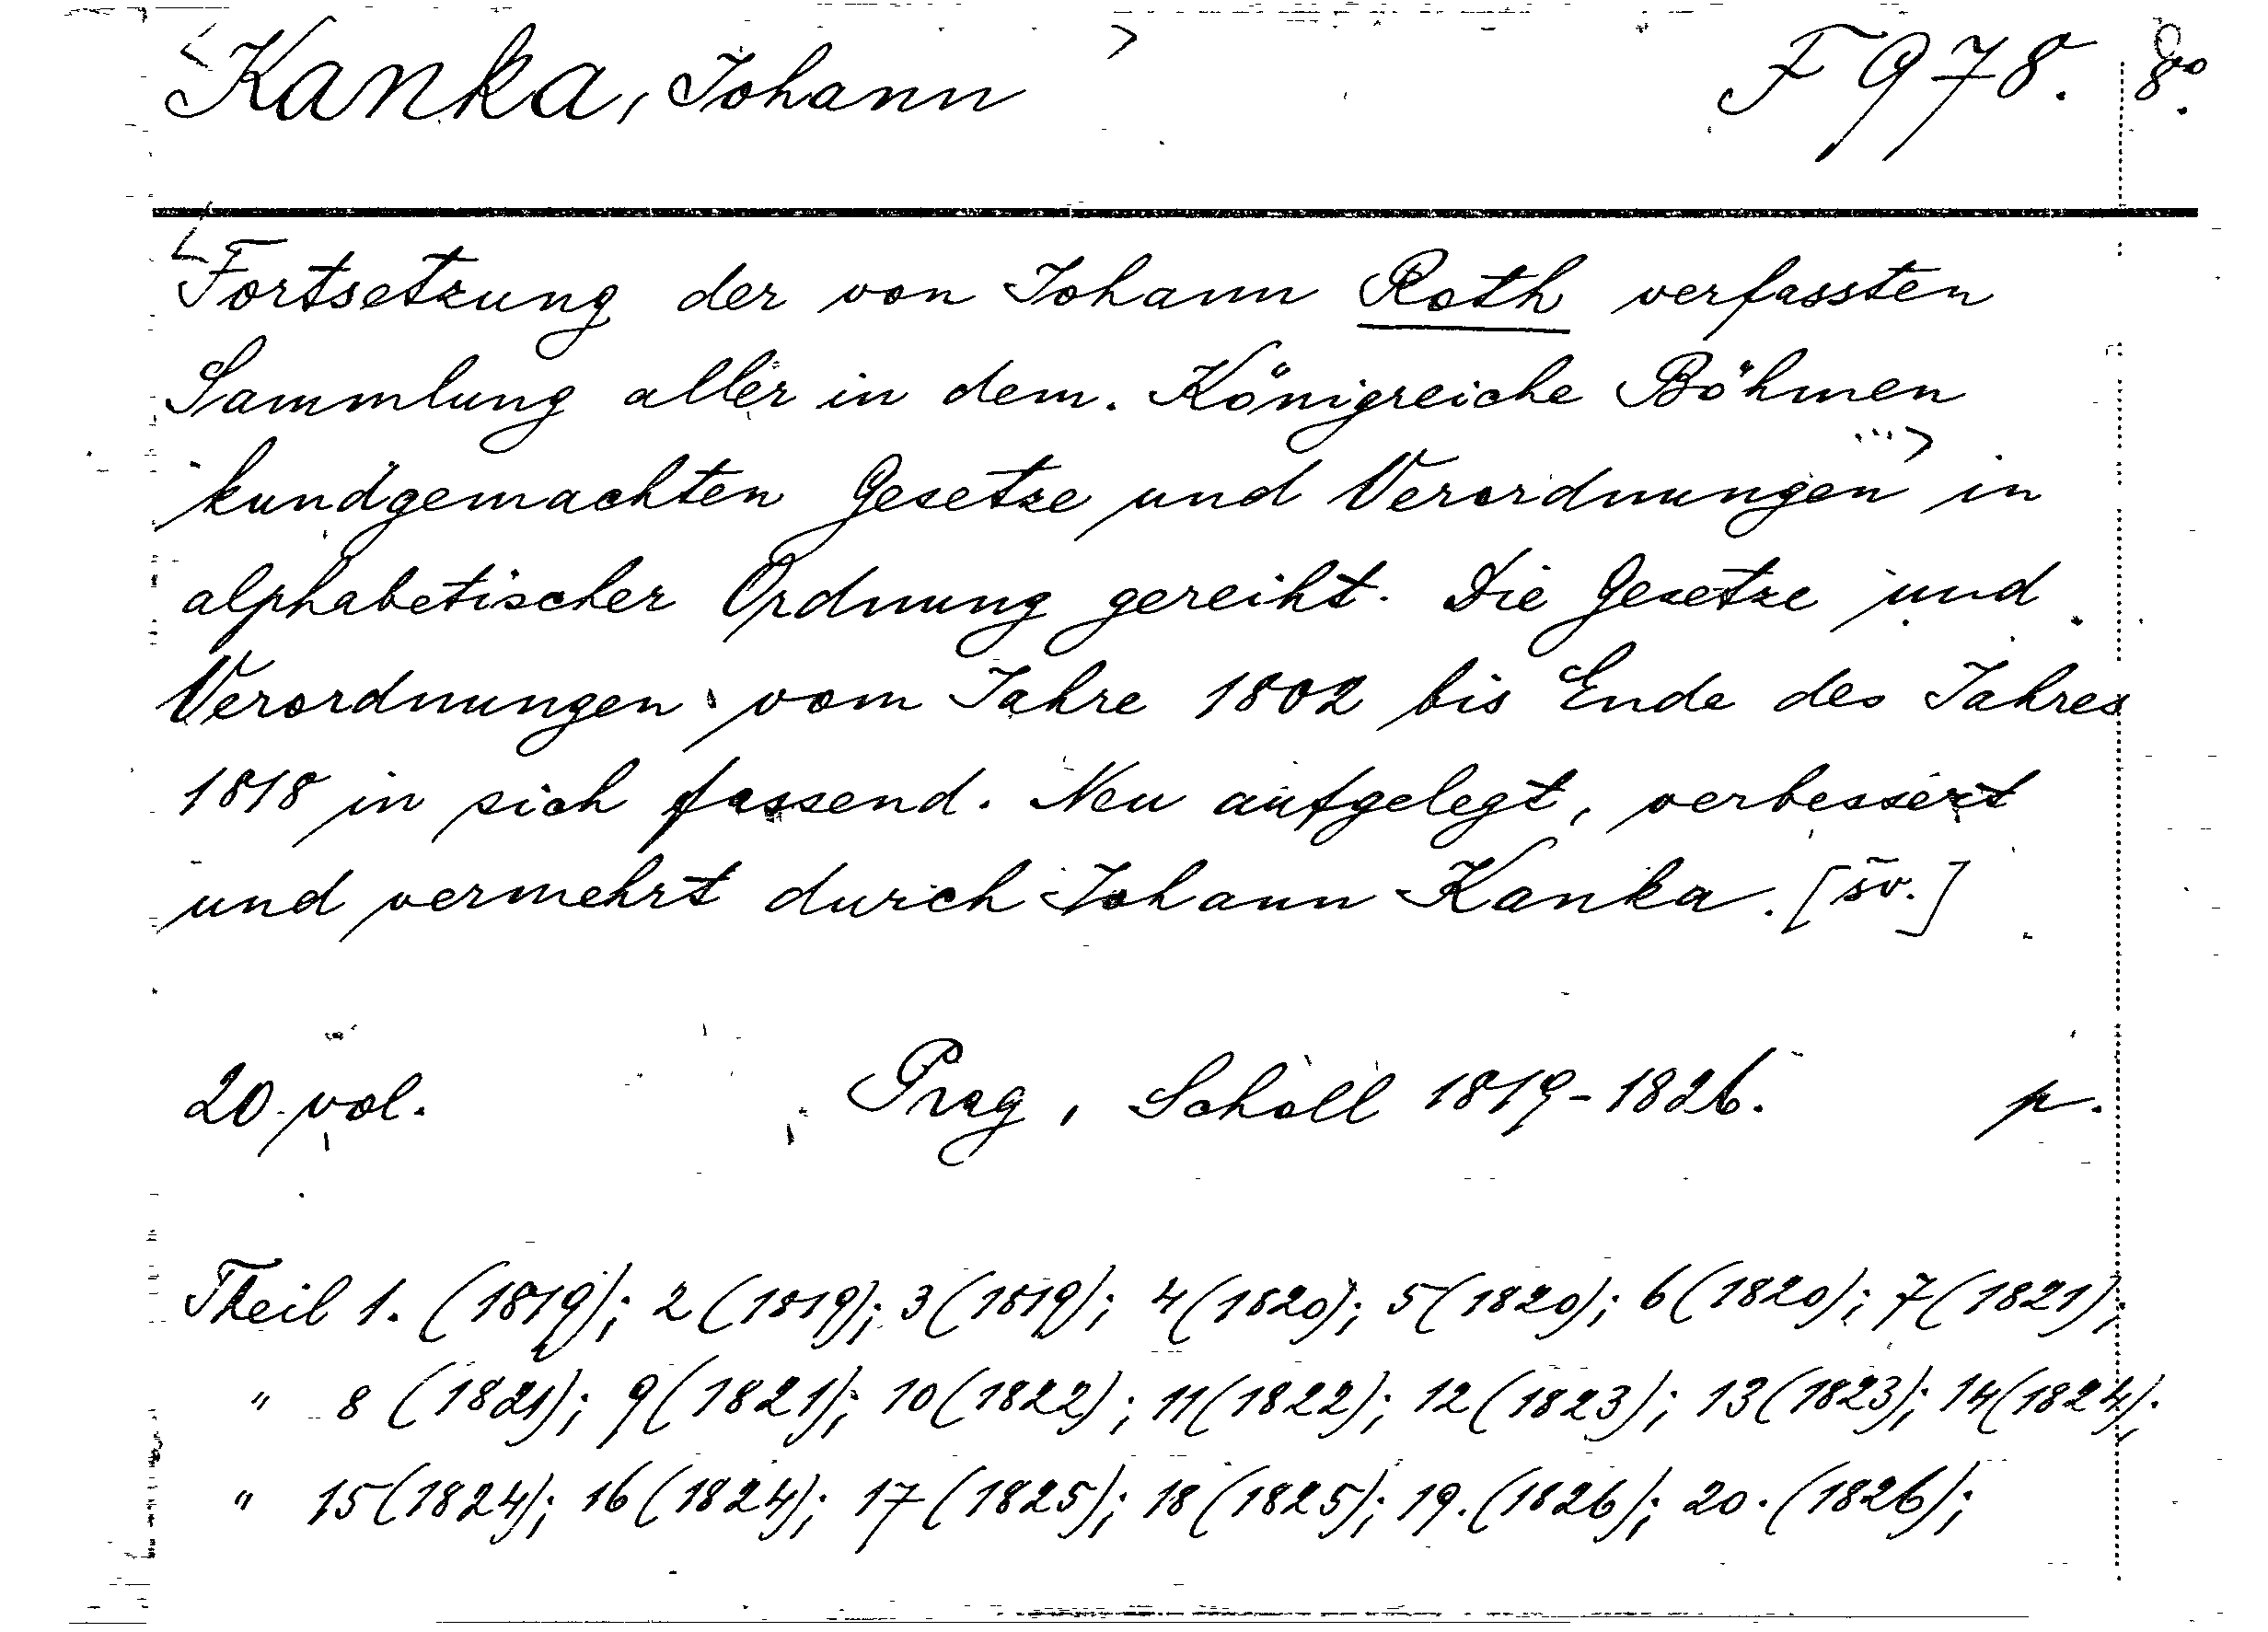 <Kanka, Johann> F 978. 8o.
<Fortsetzung der von Johann Roth verfassten
Sammlung aller in dem Königreiche Böhmen
kundgemachten Gesetze und Verordnungen ...> in
alphabetischer Ordnung gereiht. Die Gesetze und
Verordnungen vom Jahre 1802 bis Ende des Jahres
1818 in sich fassend. Neu aufgelegt, verbessert
und vermehrt durch Johann Kanka. [šv.]
20 vol. Prag, Scholl 1819-1826. p.
Theil 1. (1819); 2 (1819); 3 (1819); 4 (1820); 5 (1820); 6 (1820); 7 (1821);
" 8 (1821); 9 (1821); 10 (1822); 11 (1822); 12 (1823); 13 (1823); 14 (1824);
" 15 (1824); 16 (1824); 17 (1825); 18 (1825); 19. (1826); 20. (1826);